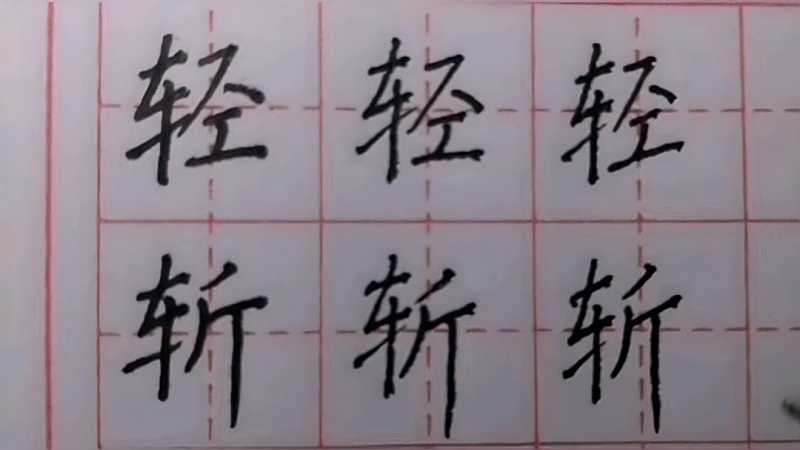 轻轻轻
斩斩斩